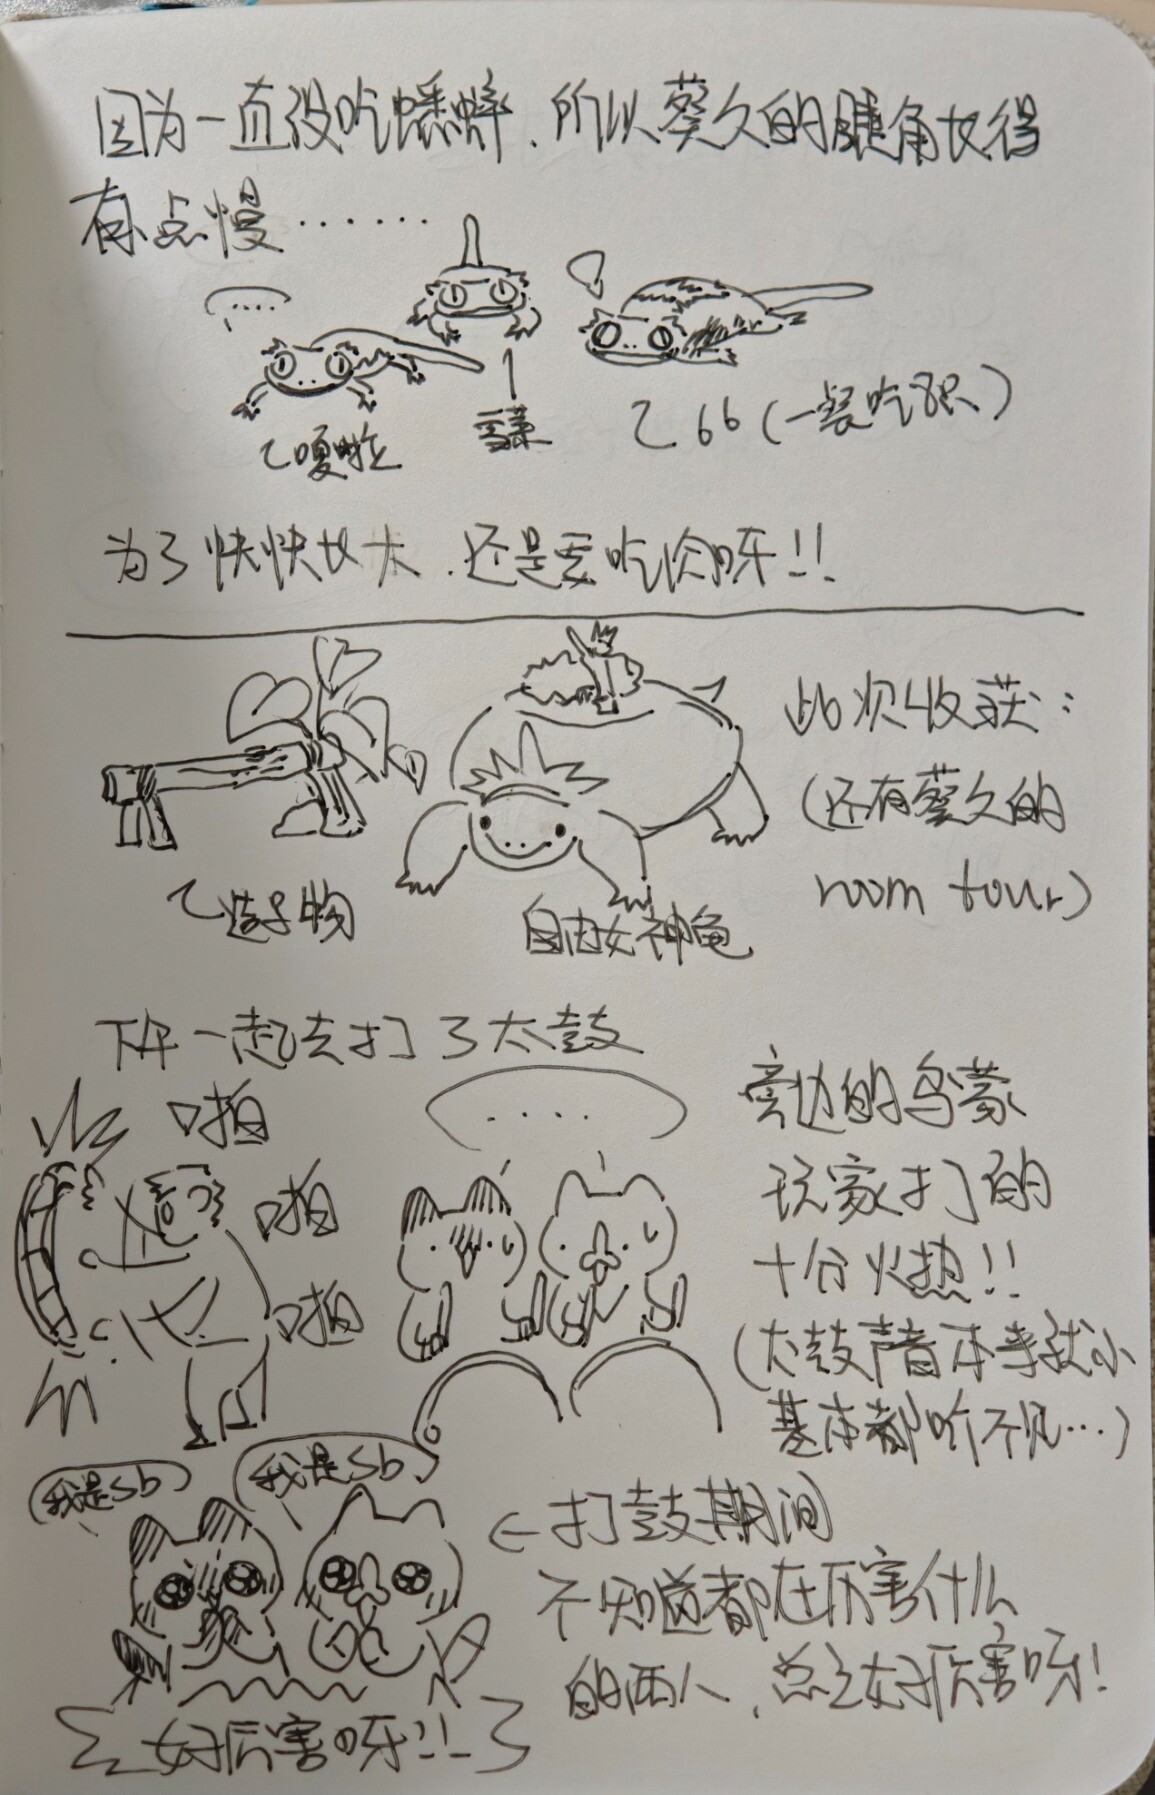 因为一直没吃蟋蟀,所以葵久的睫角长得
有点慢......
....
乙嘎啦
↑
雪莱
乙66(一餐吃8只)
为了快快长大,还是要吃肉呀!!
此次收获:
(还有葵久的
room tour)
乙造子物
自由女神龟
下午一起去打了太鼓
啪
啪
啪
....
旁边的乌蒙
玩家打的
十分火热!!
(太鼓声音本来就小
基本都听不见...)
我是sb
我是sb
←打鼓期间
不知道都在厉害什么
的两人,总之好厉害呀!
好厉害呀!!